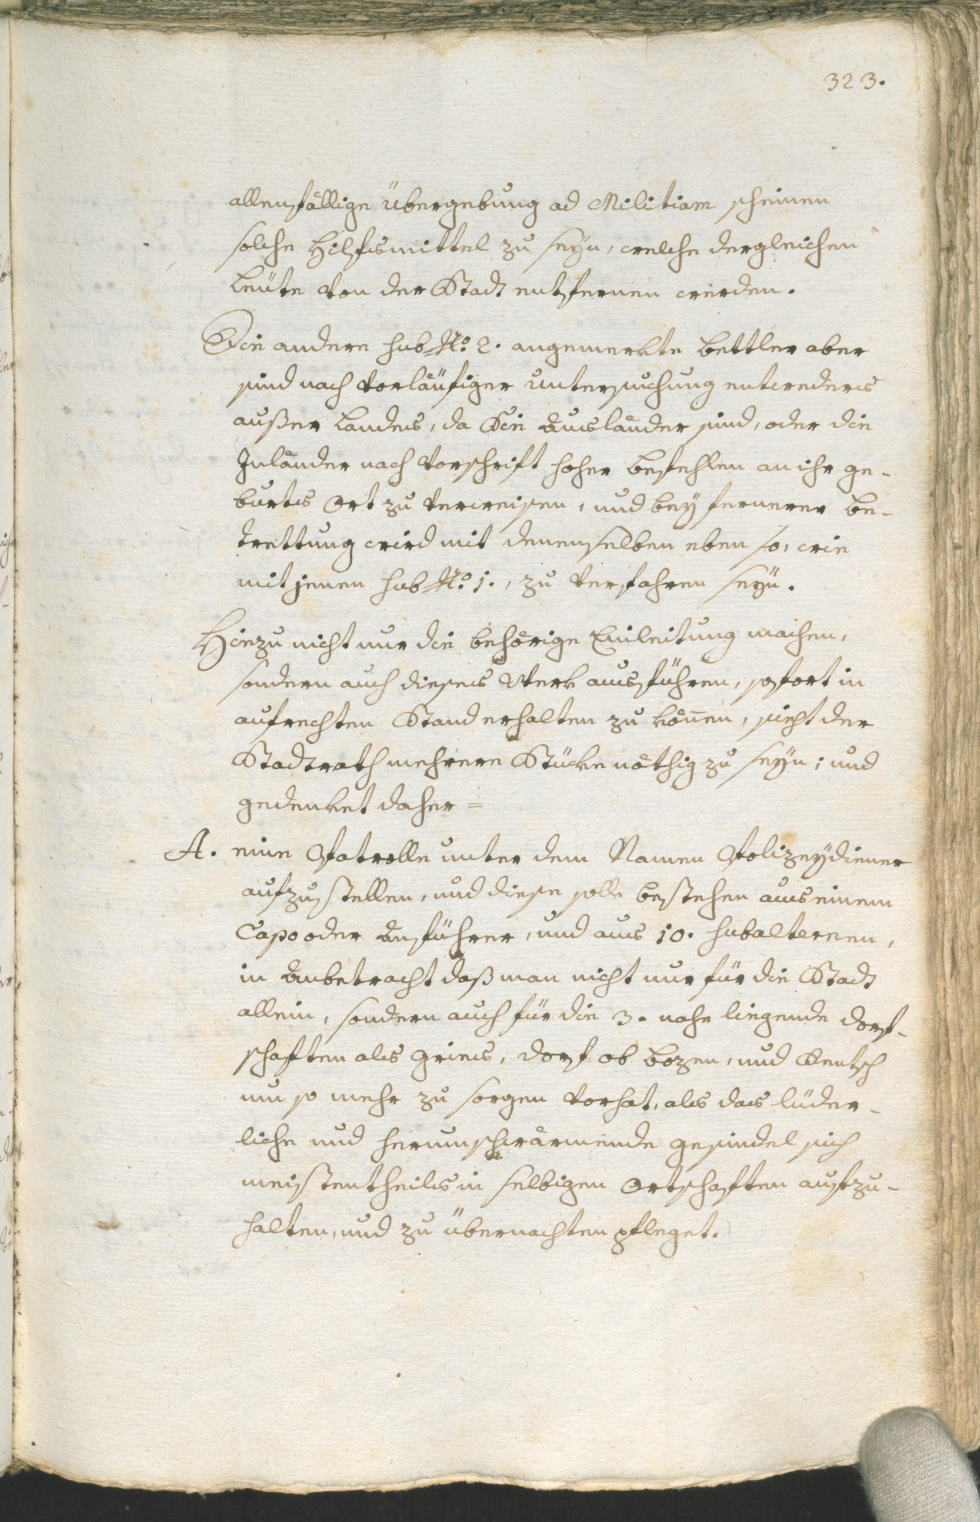 323.
allenfällige Übergebung ad Militiam scheinen
solche Hilfsmittel zu seÿn, welche dergleichen
Leüte von der Stadt entfernen werden.
Die andere sub No: 2. angemerkte Bettler aber
sind nach vorläufiger Untersuchung entweders
außer Landes, da Sie Ausländer sind, oder die
Inländer nach Vorschrift hoher Befehlen an ihr ge-
burts Ort zu verweisen, und beÿ fernerer Be-
trettung wird mit denenselben eben so, wie
mit jenen sub No: 1., zu verfahren seÿn.
Hiezu nicht nur die behörige Einleitung machen,
sondern auch dieses Werk ausführen, sofort in
aufrechten Stand erhalten zu können, sieht der
Stadtrath mehrere Stücke nöthig zu seÿn; und
gedenket daher =
A. eine Patrolle unter dem Namen Polizeÿdiener
aufzustellen, und diese solle bestehen aus einem
Capo oder Anführer, und aus 10. subalternen,
in Anbetracht daß man nicht nur für die Stadt
allein, sondern auch für die 3. nahe liegende Dorf-
schaften als Gries, Dorf ob Bozen, und Rentsch
um so mehr zu sorgen vorhat, als das lüder-
liche und herumschwärmende gesindel sich
meistentheils in selbigen Ortschaften aufzu-
halten, und zu übernachten pfleget.